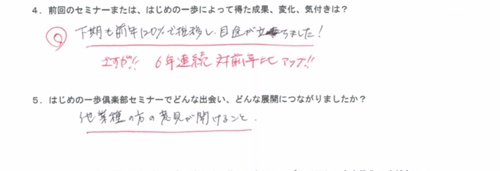 4．前回のセミナーまたは、はじめの一歩によって得た成果、変化、気付きは？
下期も前年120%で推移し、目途が立ちました！
さすが!! 6年連続対前年比アップ!!
5．はじめの一歩倶楽部セミナーでどんな出会い、どんな展開につながりましたか？
他業種の方の意見が聞けること。